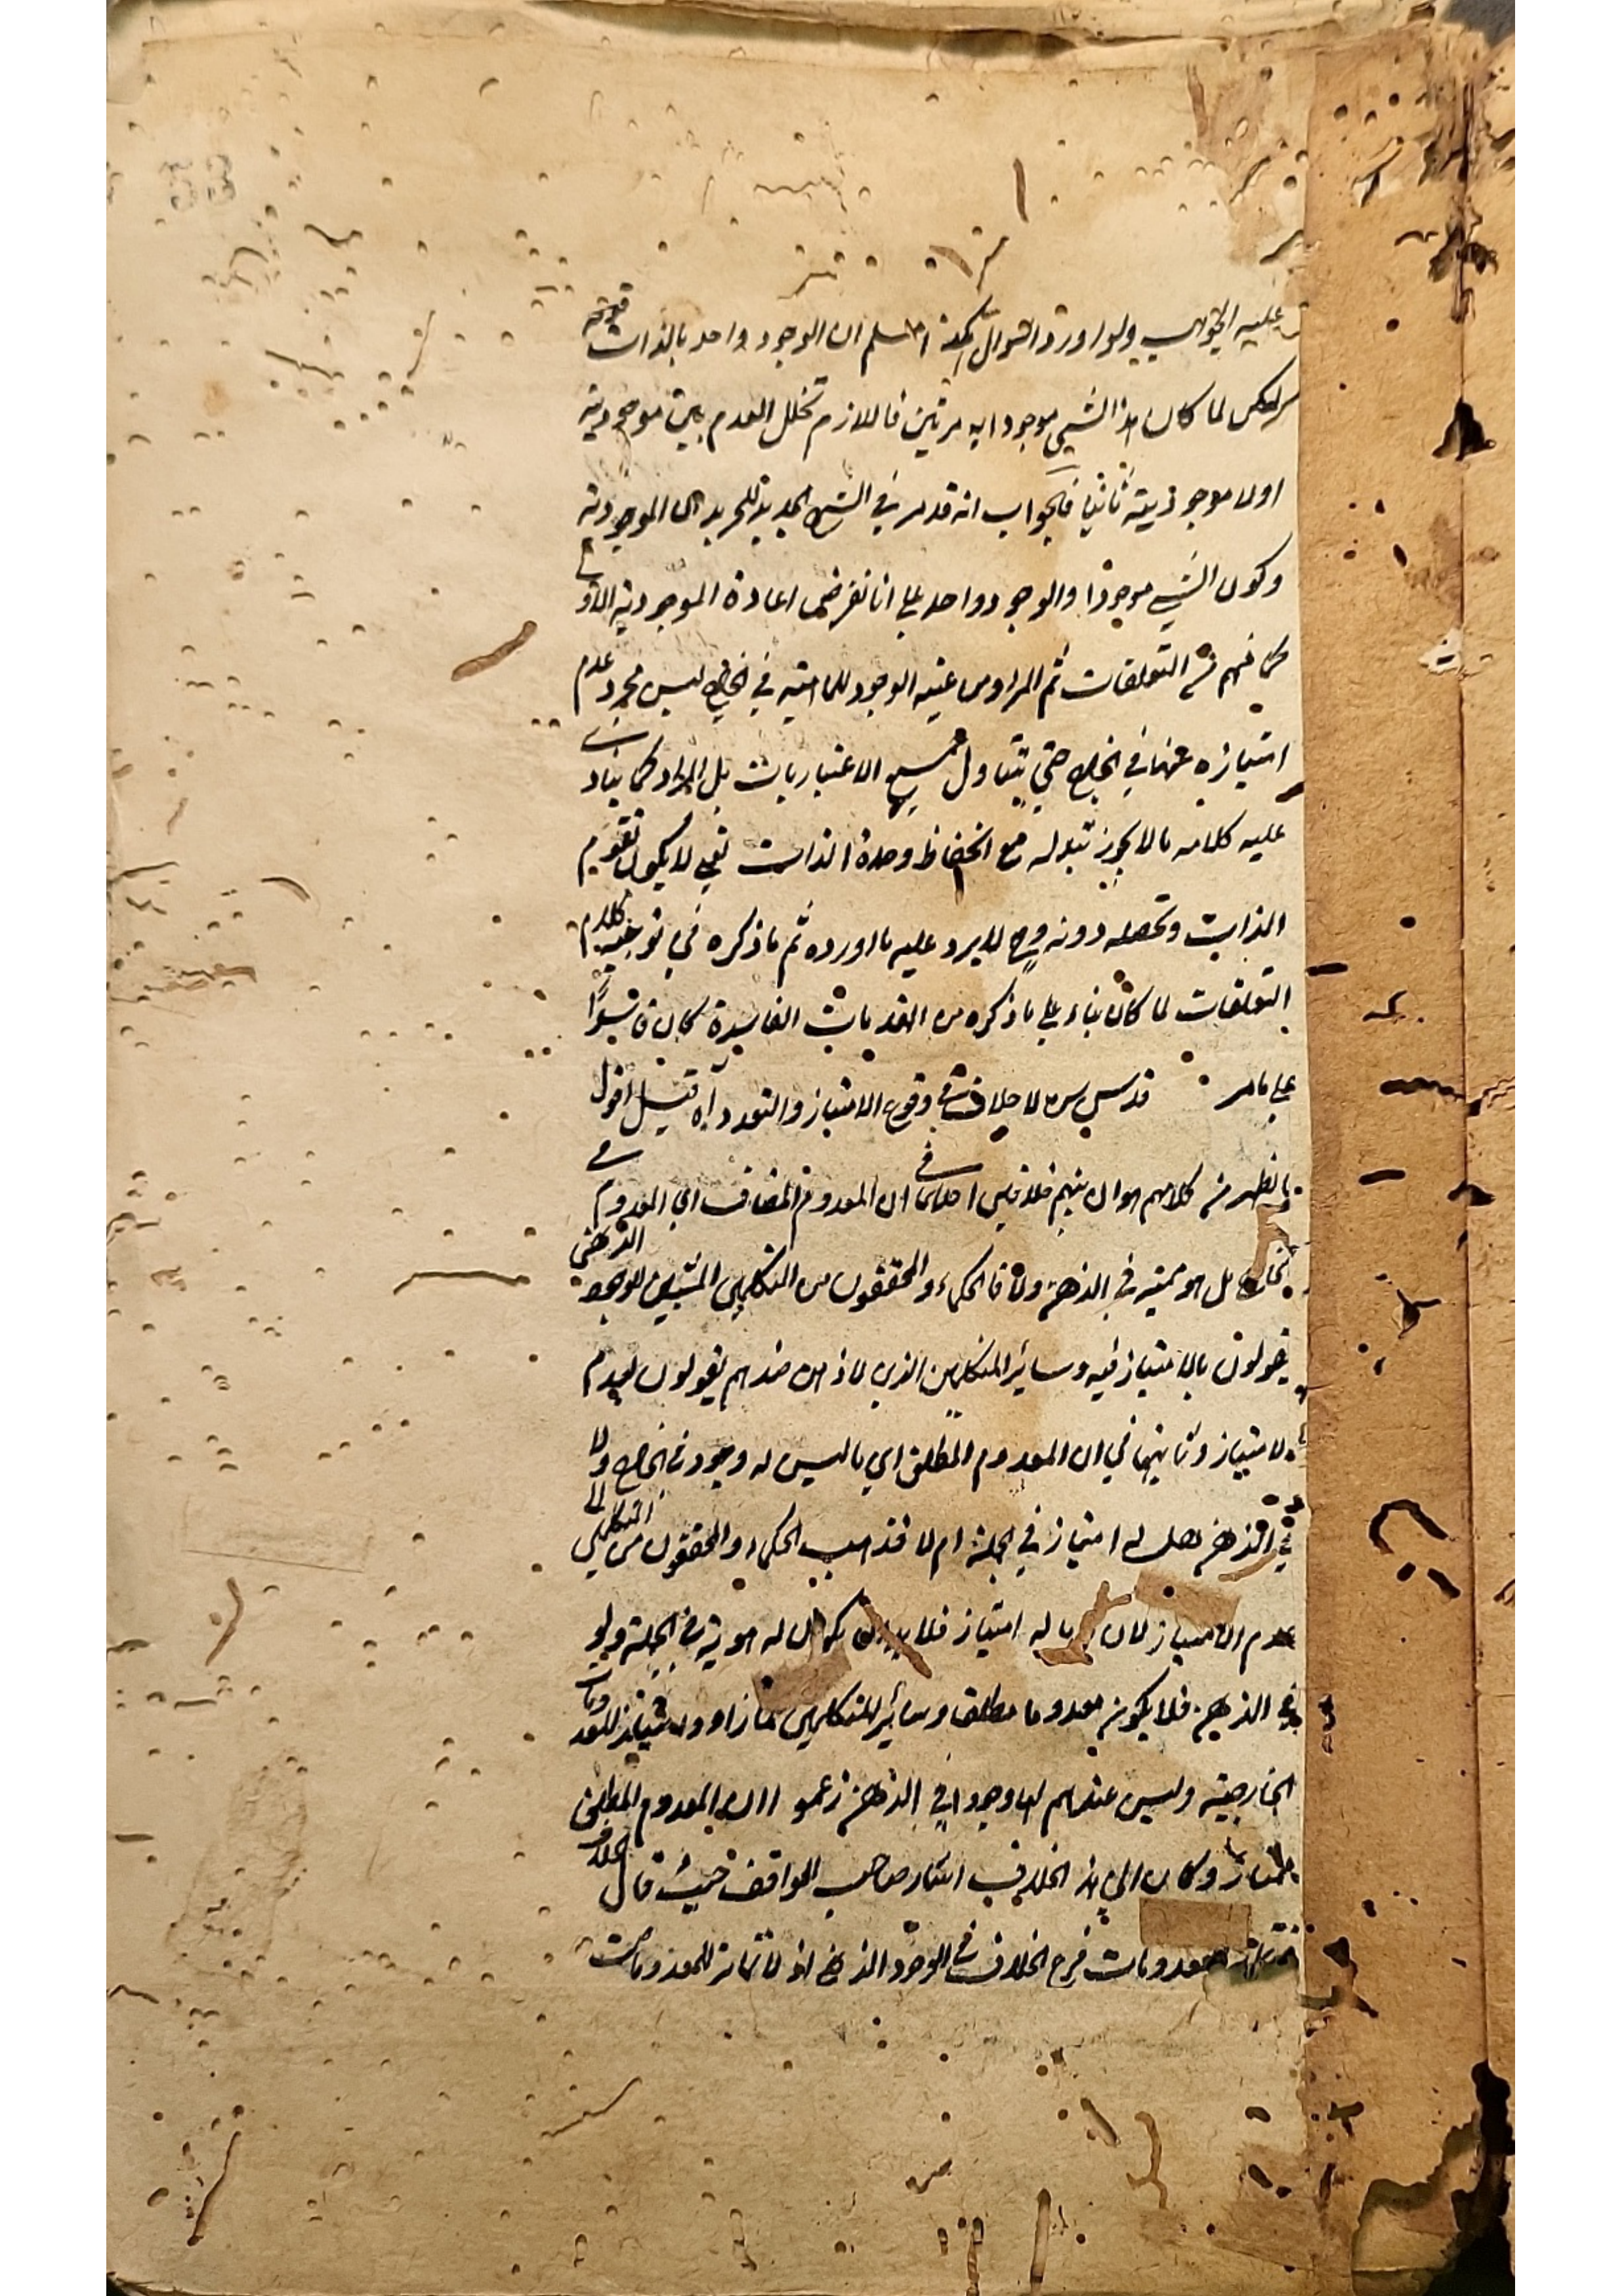 عليه الجواب ولو اورد السوال هكذا انا نسلم ان الوجود واحد بالذات
لكن لما كان هذا الشي موجودا به مرتين فاللازم تخلل العدم بين موجوديته
اولا وموجوديته ثانيا فالجواب انه قد مر في الشرح الجديد للتجريد ان الموجودية
وكون الشي موجودا والوجود واحد علي انا نفرض اعادة الموجودية الاولي
كما فهم من التعلقات ثم المراد من عينية الوجود للماهية في الخارج ليس مجرد عدم
امتيازه عنها في الخارج حتي يتناول جميع الاعتباريات بل المراد كما ينادي
عليه كلامه ما لا يجوز تبدله مع انحفاظ وحدة الذات يعني لا يكون تقويم
الذات وتحصله دونه وح لا يرد عليه ما اورده ثم ما ذكره في توجيه كلام
التعلقات لما كان بناء علي ما ذكره من المقدمات الفاسدة كان فاسدا
علي ما مر قدس سره لا خلاف في وقوع الامتياز والتعدد آه قيل اقول
ما يظهر من كلامهم هو ان بينهم خلافين احدهما في ان المعدوم المضاف اي المعدوم في
الخارج هل هو متميز في الذهن ولا فالحكماء والمحققون من المتكلمين المثبتين للوجود الذهني
يقولون بالامتياز فيه وسائر المتكلمين الذي لا ذهن عندهم يقولون بعدم
الامتياز وثانيهما في ان المعدوم المطلق اي ما ليس له وجود في الخارج ولا
في الذهن هل له امتياز في الجملة ام لا فذهب الحكماء والمحققون من المتكلمين الي
عدم الامتياز لان ما له امتياز فلا بد ان يكون له هوية في الجملة ولو
في الذهن فلا يكون معدوما مطلقا وسائر المتكلمين لما راوا الامتياز للمعدومات
الخارجية وليس عندهم لها وجود في الذهن زعموا ان المعدوم المطلق
ممتاز وكان الي هذا الخلاف اشار صاحب المواقف حيث قال الخلاف
المعدومات فرع الخلاف في الوجود الذهني اذ لا تمايز للمعدومات